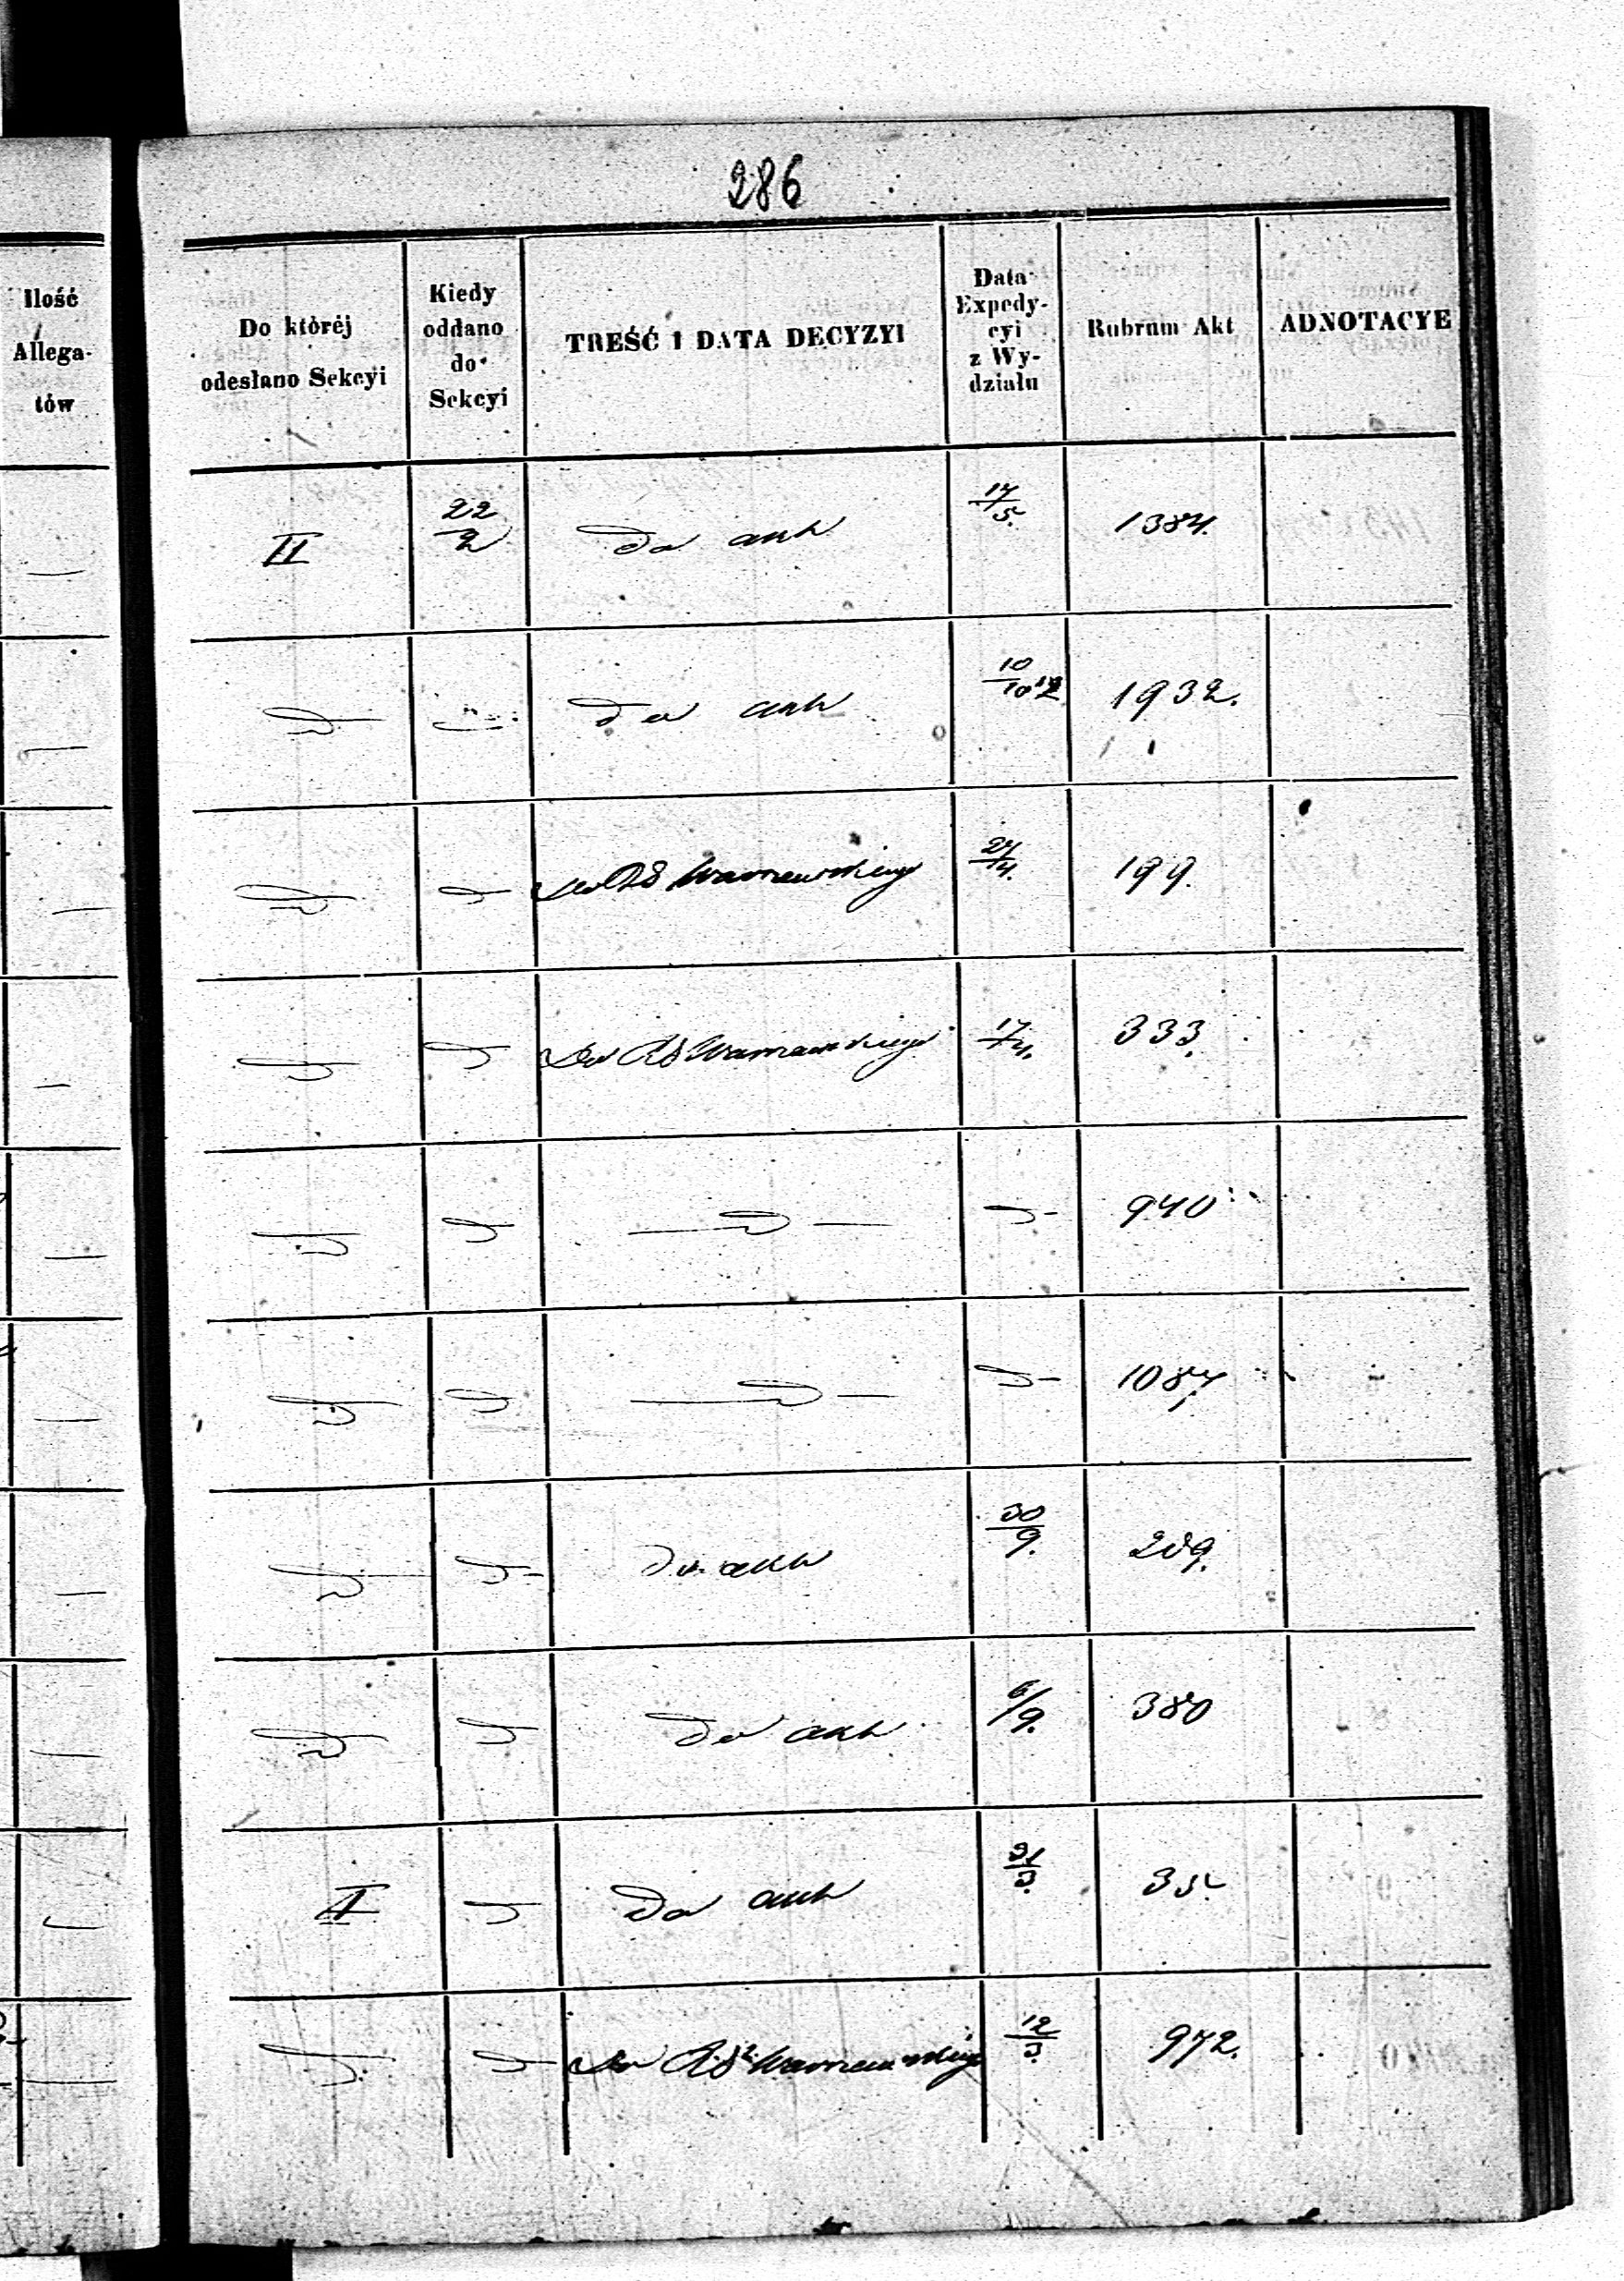 286
Ilość
Allega-
tów
Do któréj
odesłano Sekcyi
Kiedy
oddano
do
Sekcyi
TREŚĆ I DATA DECYZYI
Data
Expedy-
cyi
z Wy-
działu
Rubrum Akt
ADNOTACYE
II 22/2 Do akt 17/5. 1384.
Do akt 10/10 1932.
Do Warszawskiego 27/4. 199.
Do Warszawskiego 17/4. 333.
940
1087
do akt 30/9. 209.
Do akt 6/9. 380
II Do akt 31/3. 35
Do Warszawskiego 12/3. 972.